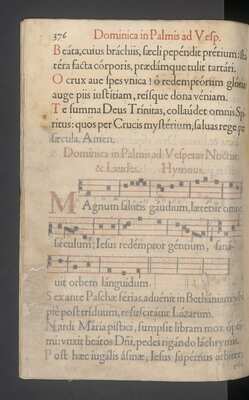 376 Dominica in Palmis ad Vesp.
Beáta, cuius bráchiis, sæcli pepéndit prétium: sta
téra facta córporis, prædámque tulit tartári.
O crux aue spes vnica! ò redemptórum glória
auge piis iustítiam, reísque dona véniam.
Te summa Deus Trínitas, collaúdet omnis Spí
ritus: quos per Crucis mystérium, saluas rege per
sæcula. Amen.
Dominica in Palmis ad Vesperas Noctur.
& Laudes. Hymnus.
MAgnum salútis gáudium, lætétur omne
sǽculum: Iesus redémptor géntium, saná-
uit orbem lánguidum.
Sex ante Paschæ férias, aduénit in Bethániam
pie post tríduum, resuscitáuit Lázarum.
Nardi María pístici, sumpsit libram mox
mi: vnxit beátos Dñi, pedes rigándo láchry
Post hæc iugális ásinæ, Iesus supérnus